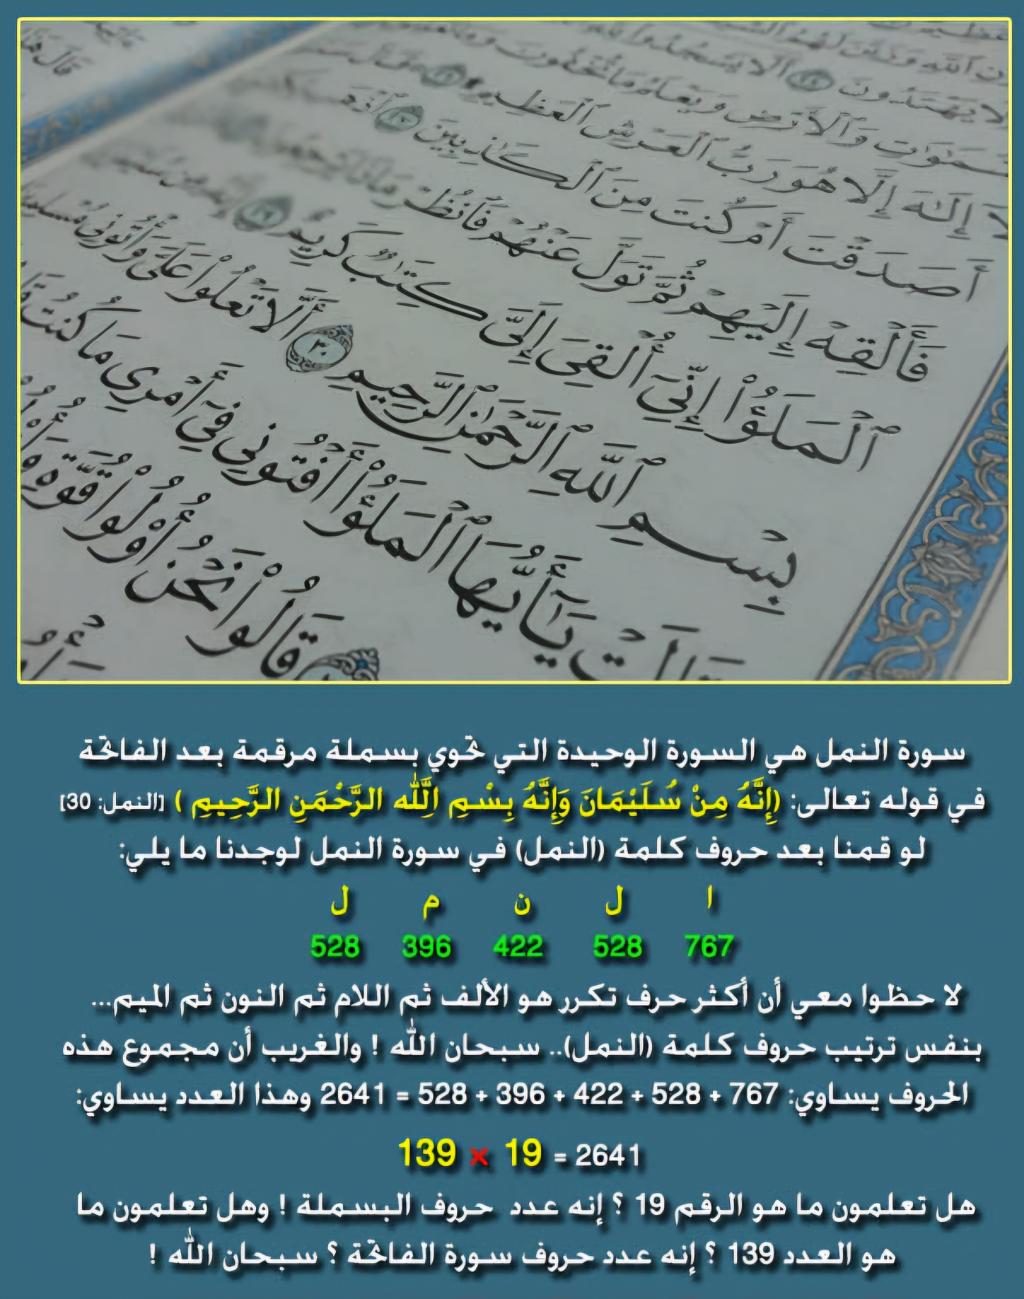 ن الله
ألا يسجدوا لله
لا يهتدون
ٱلسموت وٱلأرض ويعلم ما تخفون
إله إلا هو رب ٱلعرش ٱلعظيم
أصدقت أم كنت من ٱلكذبين
فألقه إليهم ثم تول عنهم فٱنظر
ٱلملؤا إني ألقي إلي كتب كريم ٢٩
بسم ٱلله ٱلرحمن ٱلرحيم ٣٠ ألا تعلوا علي وأتوني
يأيها ٱلملؤا أفتوني في أمري ما كنت
قالوا نحن أولوا قوة
سورة النمل هي السورة الوحيدة التي تحوي بسملة مرقمة بعد الفاتحة
في قوله تعالى: (إِنَّهُ مِنْ سُلَيْمَانَ وَإِنَّهُ بِسْمِ اللَّهِ الرَّحْمَنِ الرَّحِيمِ ) [النمل: 30]
لو قمنا بعد حروف كلمة (النمل) في سورة النمل لوجدنا ما يلي:
ا ل ن م ل
767 528 422 396 528
لا حظوا معي أن أكثر حرف تكرر هو الألف ثم اللام ثم النون ثم الميم...
بنفس ترتيب حروف كلمة (النمل).. سبحان الله ! والغريب أن مجموع هذه
الحروف يساوي: 767 + 528 + 422 + 396 + 528 = 2641 وهذا العدد يساوي:
2641 = 19 × 139
هل تعلمون ما هو الرقم 19 ؟ إنه عدد حروف البسملة ! وهل تعلمون ما
هو العدد 139 ؟ إنه عدد حروف سورة الفاتحة ؟ سبحان الله !